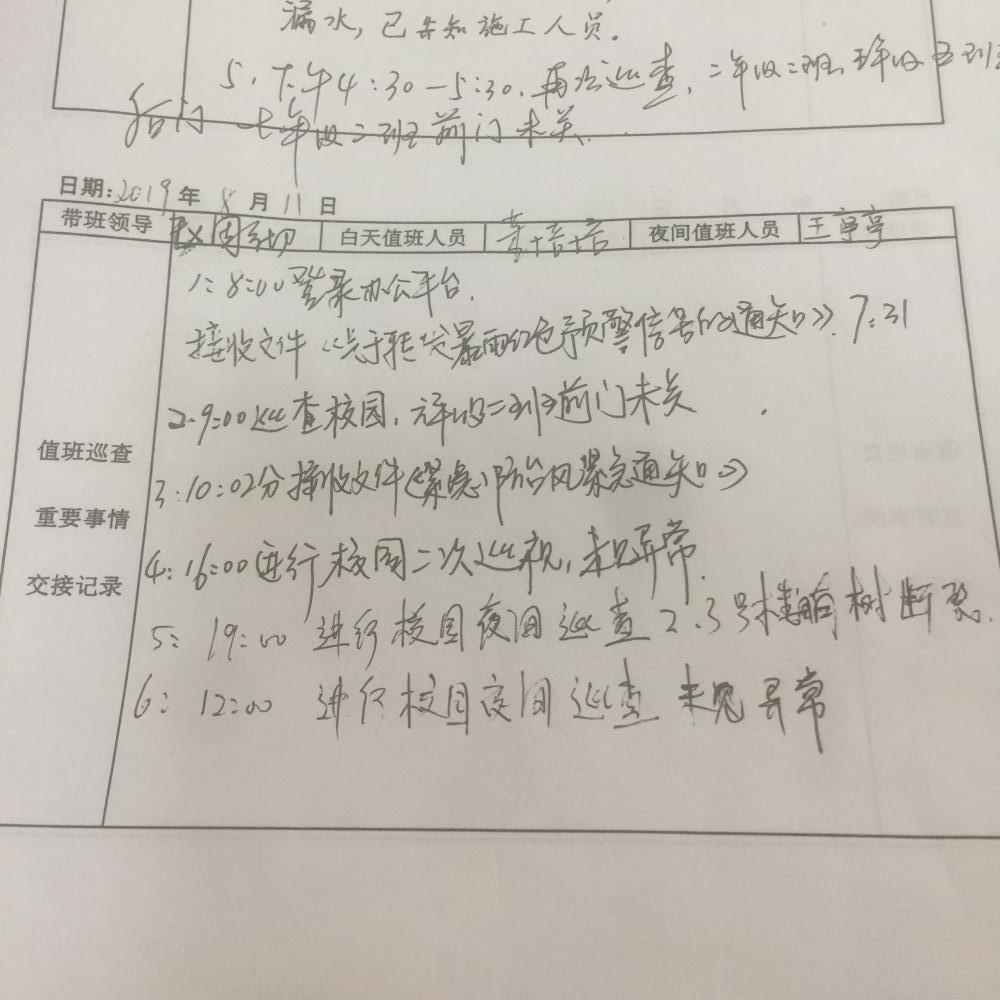 漏水,已告知施工人员。
5.下午4:30—5:30.再次巡查,二年级二班 年级五班
后门 七年级二班前门未关.
日期:2019年8月11日
带班领导 赵国切 白天值班人员 培培 夜间值班人员 王亭亭
1:8:00登录办公平台.
接收文件《关于转发暴雨红色预警信号的通知》.7:31
2.9:00巡查校园,六年级二班前门未关.
值班巡查
3:10:02分接收文件《紧急防台风紧急通知》
重要事情
4:16:00进行校园二次巡视,未见异常.
交接记录
5:19:00 进行校园夜间巡查 2.3号楼后树断裂.
6:12:00 进行校园夜间巡查 未见异常